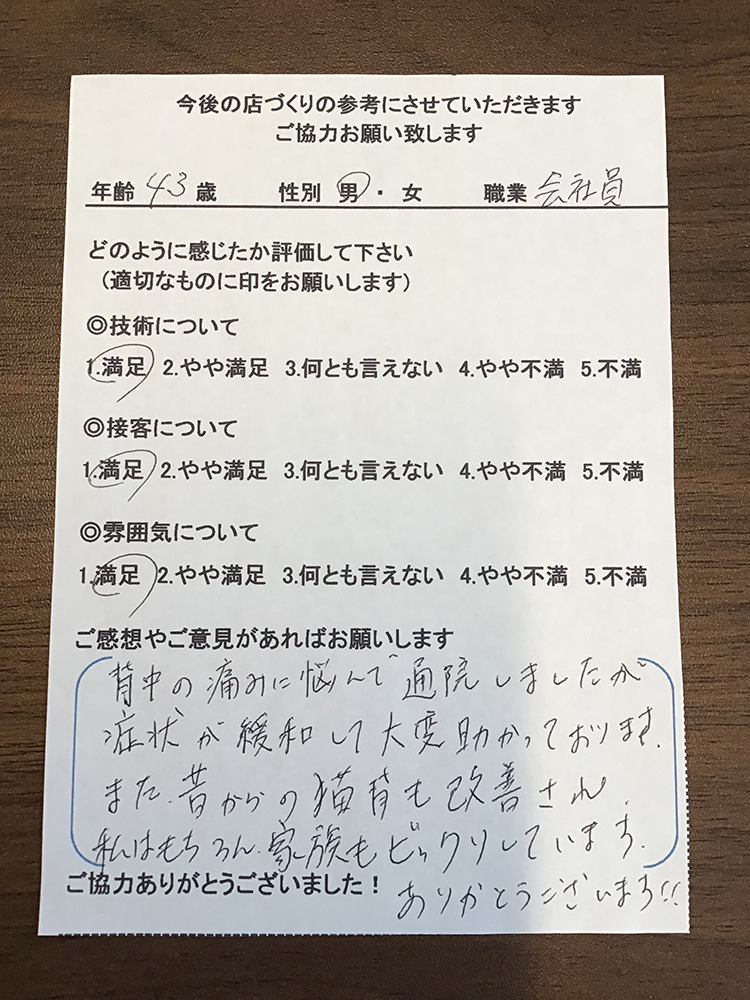 今後の店づくりの参考にさせていただきます
ご協力お願い致します
年齢 43 歳 性別 男・女 職業 会社員
どのように感じたか評価して下さい
(適切なものに印をお願いします)
◎技術について
1.満足 2.やや満足 3.何とも言えない 4.やや不満 5.不満
◎接客について
1.満足 2.やや満足 3.何とも言えない 4.やや不満 5.不満
◎雰囲気について
1.満足 2.やや満足 3.何とも言えない 4.やや不満 5.不満
ご感想やご意見があればお願いします
背中の痛みに悩んで通院しましたが
症状が緩和して大変助かっております.
また.昔からの猫背も改善され.
私はもちろん.家族もビックリしています.
ご協力ありがとうございました!
ありがとうございます!!